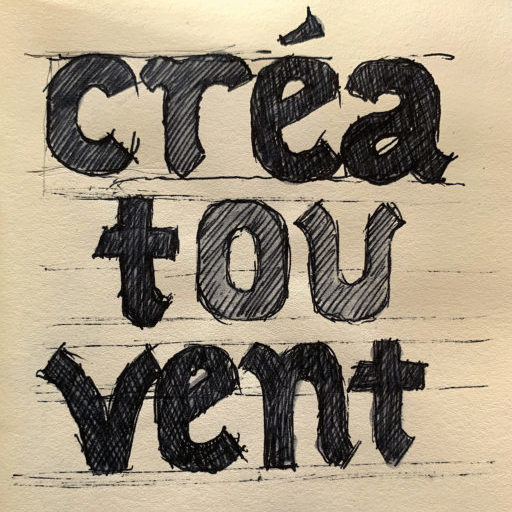 créa
tou
vent